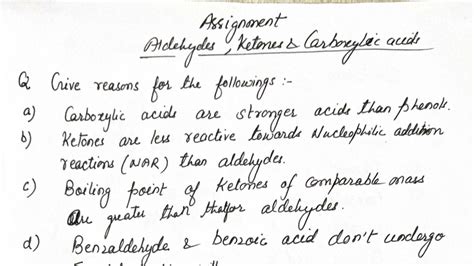 Assignment
Aldehydes, Ketones & Carboxylic acids
Q Give reasons for the followings :-
a) Carboxylic acids are stronger acids than phenols.
b) Ketones are less reactive towards Nucleophilic addition
reactions (NAR) than aldehydes.
c) Boiling point of Ketones of comparable mass
are greater than for aldehydes.
d) Benzaldehyde & benzoic acid don't undergo